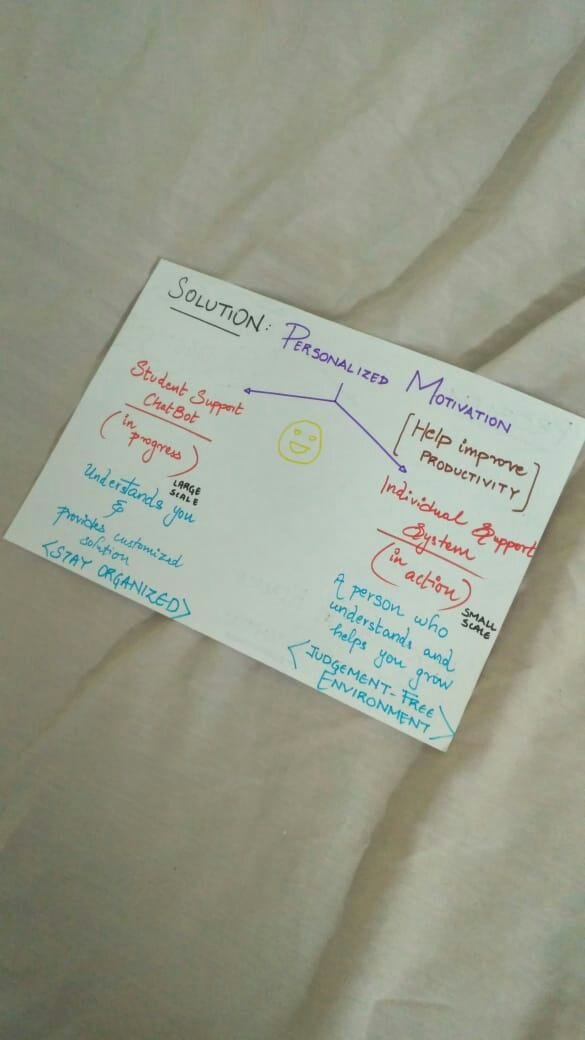 SOLUTION: PERSONALIZED MOTIVATION
Student Support
ChatBot
(in
progress)
LARGE
SCALE
Understands you
&
provides customized
solution
<STAY ORGANIZED>
[Help improve
PRODUCTIVITY]
Individual Support
System
(in action)
SMALL
SCALE
A person who
understands and
helps you grow
<JUDGEMENT-FREE
ENVIRONMENT>